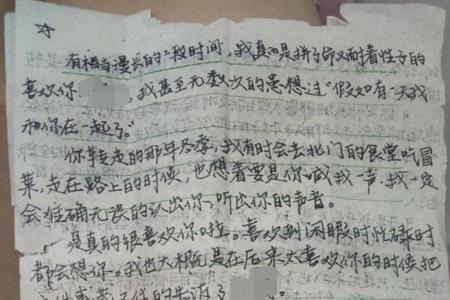 有相当漫长的一段时间，我真的是拼了命又耐着性子的
喜欢你，我甚至无数次的思想过“假如有一天我
和你在一起了。”
你转走的那年冬季，我有时会去北门的食堂吃冒
菜，走在路上的时候，也想着要是你喊我一声，我一定
会准确无误的认出你，听出你的声音。
是真的很喜欢你啦。喜欢到闲暇时忙碌时
都会想你。我也大概是在后来太喜欢你的时候把